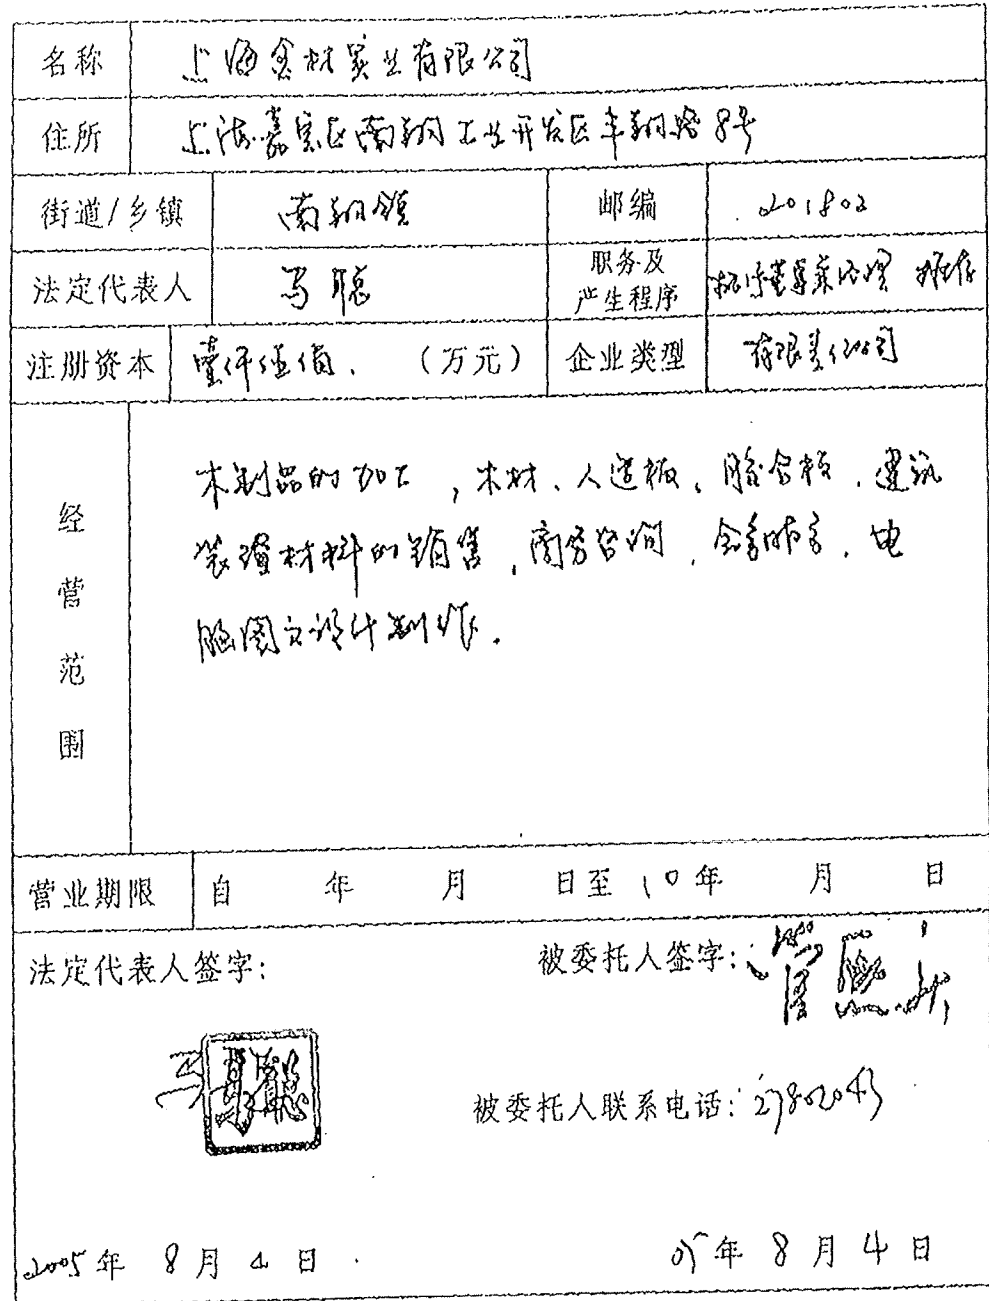 名称 上海鑫林实业有限公司
住所 上海嘉定区南翔工业开发区丰翔路8号
街道/乡镇 南翔镇 邮编 201802
法定代表人 马聪 职务及产生程序 执行董事兼经理 推荐
注册资本 壹仟伍佰 (万元) 企业类型 有限责任公司
经营范围
木制品的加工,木材、人造板、胶合板、建筑
装潢材料的销售,商务咨询,会务服务,电
脑图文设计制作。
营业期限 自 年 月 日至10年 月 日
法定代表人签字: 被委托人签字:
马聪
被委托人联系电话: 27802043
2005年 8月 4日 05年 8月 4日